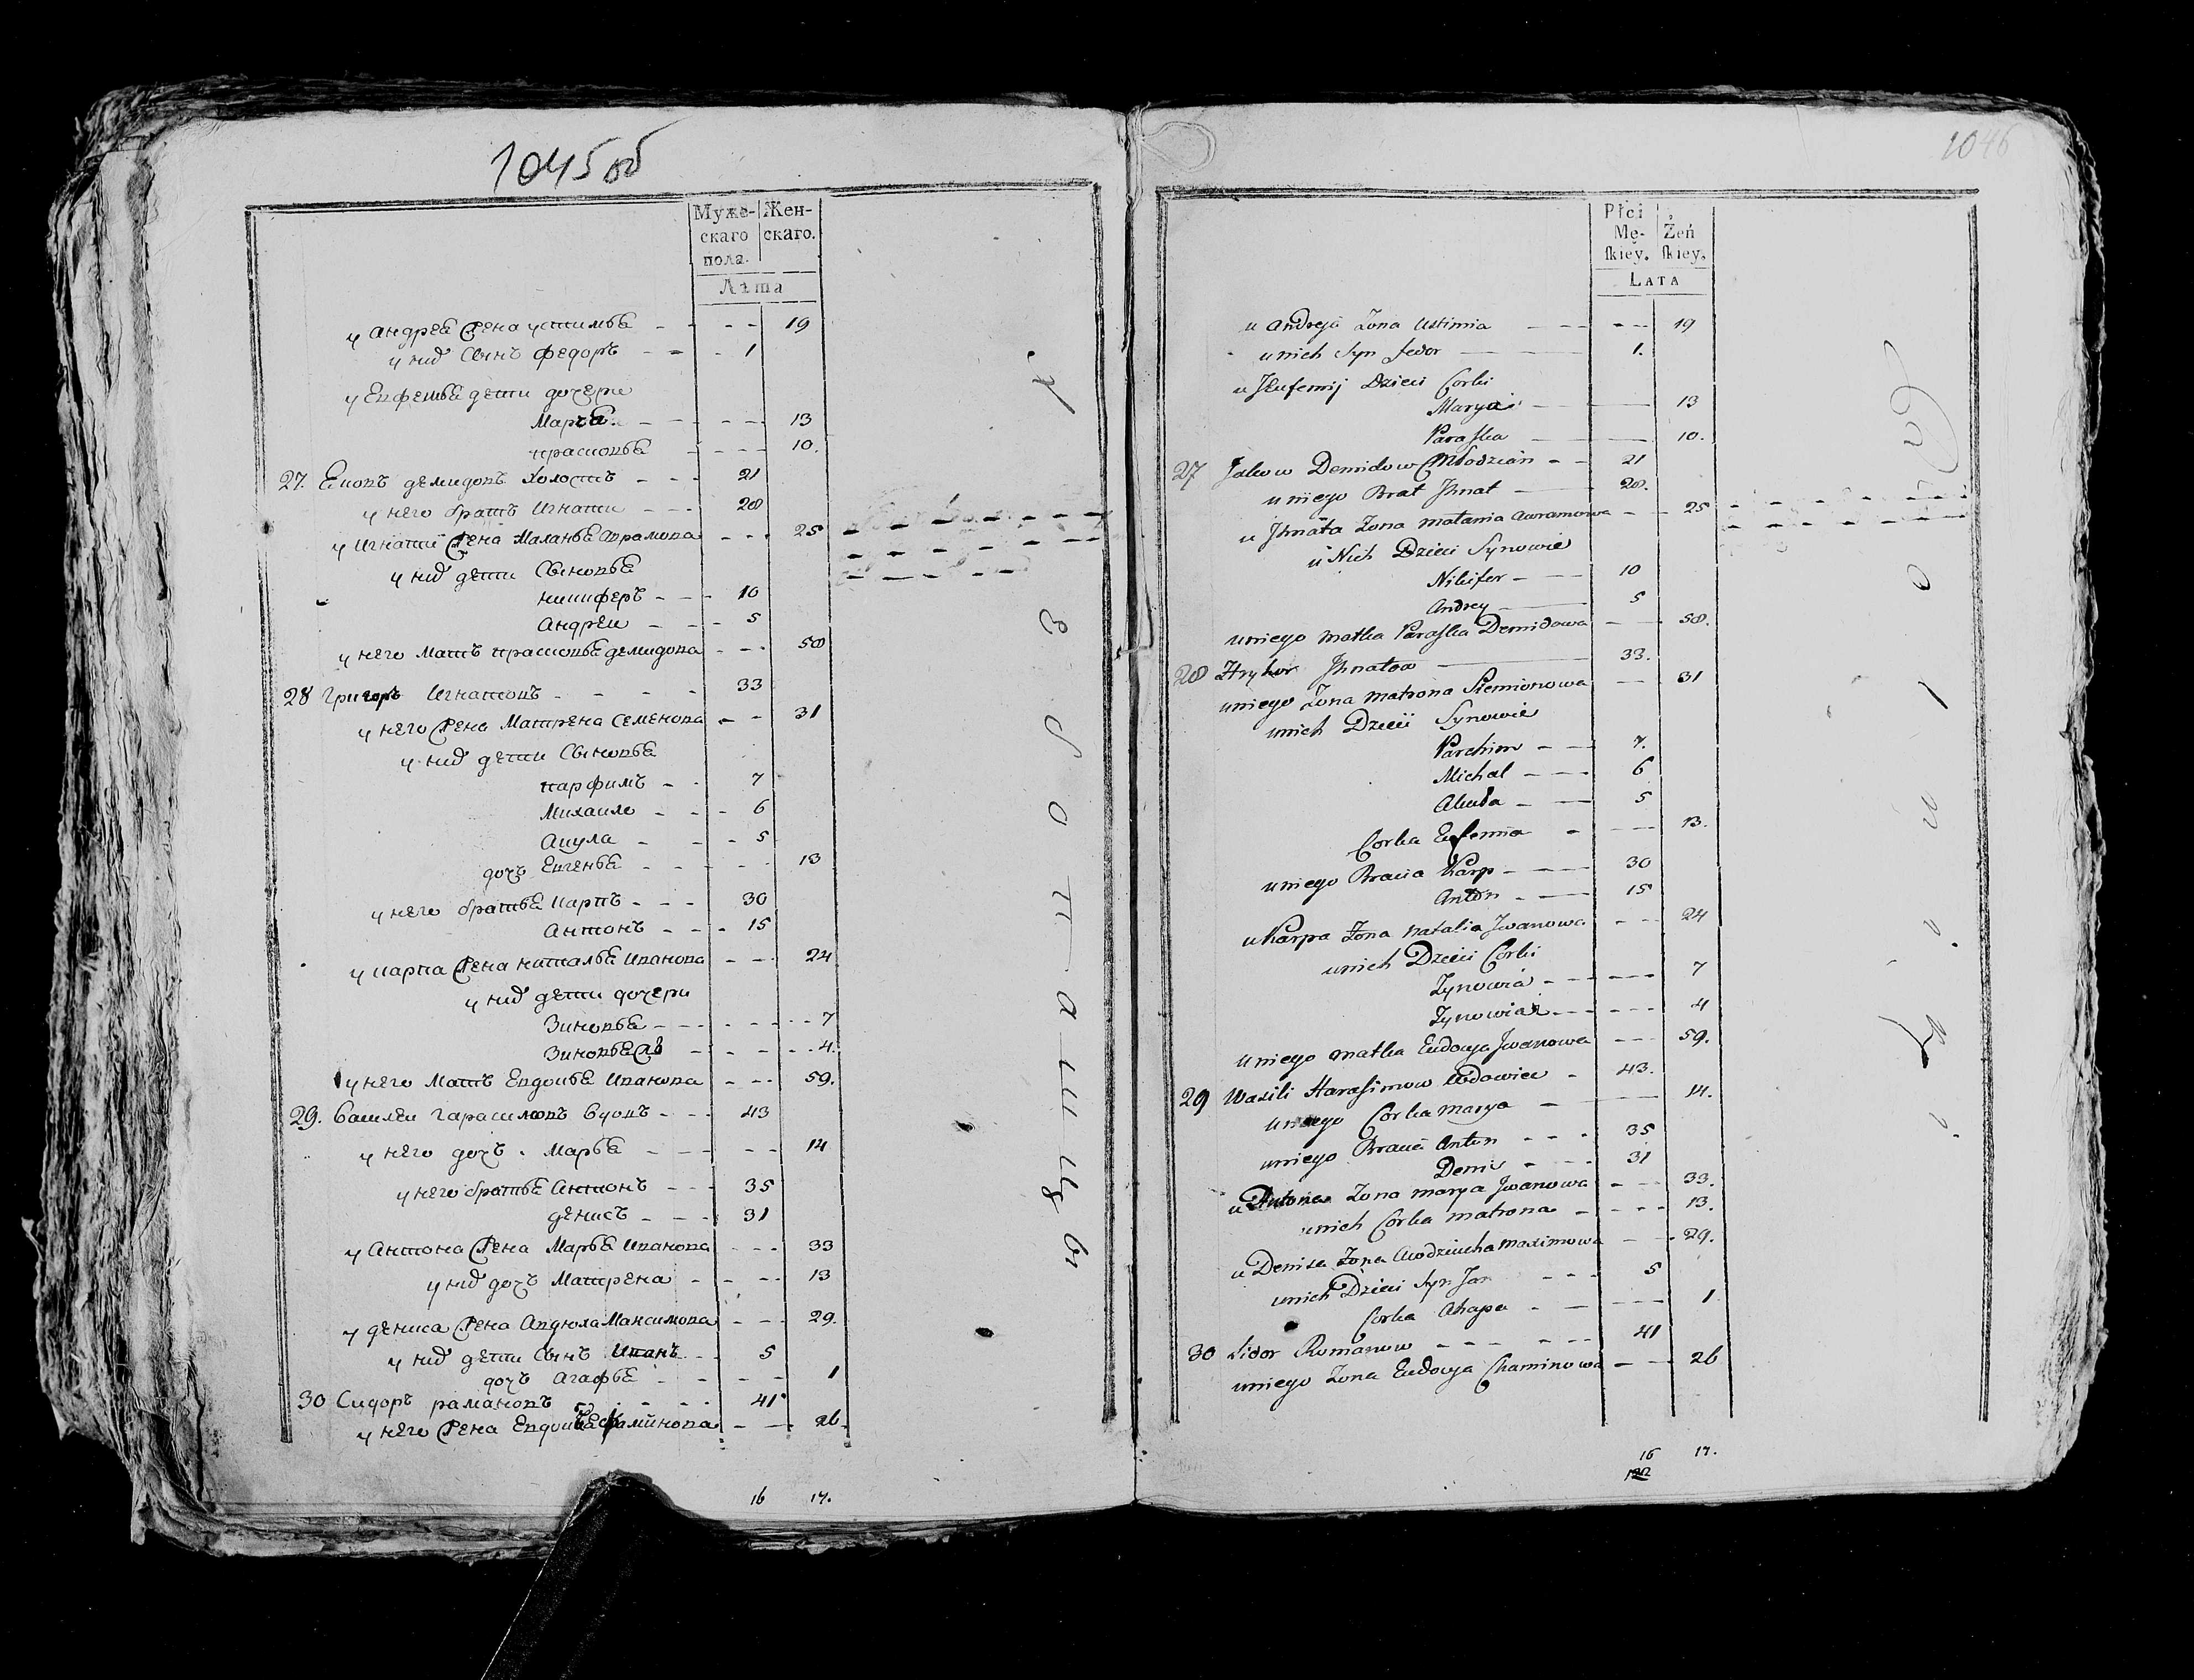 1045об
Муже- Жен-
скаго скаго.
пола.
Лѣта
у Андрея жена устимья - - - 19
у них Сынъ федоръ - - - 1
у Евфемья дети дочери
Марья - - - 13
прасковья - - - 10.
27. Яковъ демидовъ Холостъ - - - 21
у него братъ Игнати - - - 28
у Игнатя жена Маланья аврамова - - - 25
у них дети Сыновья
никиферъ - - - 10
Андреи - - - 5
у него Мать прасковья демидова - - - 58
28 григоръ Игнатовъ - - - 33
у него жена Матрена Семенова - - - 31
у них дети Сыновья
парфимъ - - 7
Михаило - - - 6
Акула - - - 5
дочь Евгенья - - - 13
у него братья карпъ - - - 30
Антонъ - - - 15
у карпа жена наталья Иванова - - - 24
у них дети дочери
Зиновья - - - 7
Зиновья - - - 4.
у него Мать Евдокья Иванова - - - 59.
29. Василеи гарасимовъ вдовъ - - - 43
у него дочь Марья - - - 14
у него братья Антонъ - - - 35
денисъ - - - 31
у Антона жена Марья Иванова - - - 33
у них дочь Матрена - - - 13
у дениса жена Авдюха Максимова - - - 29.
у них дети Сынъ Иванъ - - 5
дочь агафья - - - 1
30 Сидоръ рамановъ - - - 41
у него жена Евдокья - - - 26.
16 17.
1046
Płci
Mę- Żeń
ſkiey. ſkiey.
LATA
u Andreja Żona Ustimia - - - 19
u nich Syn fedor - 1.
u Jeufemij Dzieci Corki
Marya - 13
Paraſka - 10.
27 Jakow Demidow Młodzian - - 21
u niego Brat Jhnat - 28.
u Jhnata Żona Małania Awramowa - - 25
u Nich Dzieci Synowie
Nikifer - 10
Andrey - 5
u niego Matka Paraſka Demidowa - 58.
28 Hryhor Jhnatow - 33.
u niego Żona Matrona Siemionowa - 31
u nich Dzieci Synowie
Parchim - - 7.
Michal - - - 6
Akuła - - 5
Corka Eufemia - - - 13.
u niego Bracia Karp - - - 30
Anton - - - 15
u Karpa Żona Natalia Jwanowa - - - 24
u nich Dzieci Corki
Zynowia - - - 7
Zynowia - - - 4
u niego Matka Eudokya Jwanowa - - - 59.
29 Wasili Haraſimow Wdowiec - 43.
u niego Corka Marya - 14.
u niego Bracia Anton - - - 35
Denis - - - 31
u Antona Żona Marya Jwanowa - - 33.
u nich Corka Matrona - - - 13.
u Denisa Żona Awdziucha Maximowa - - 29.
u nich Dzieci Syn Jan - - - 5
Corka Ahapa - - - 1
30 Sidor Romanow - - - 41
u niego Żona Eudokya Chaminowa - - 26
16 17.